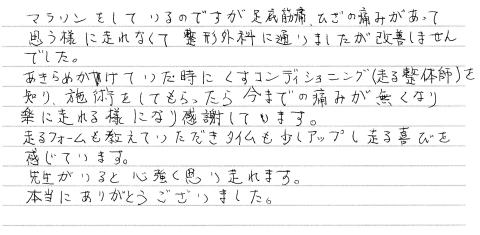 マラソンをしているのですが足底筋痛、ひざの痛みがあって
思う様に走れなくて整形外科に通いましたが改善しません
でした。
あきらめかけていた時にくすコンディショニング(走る整体師)を
知り、施術をしてもらったら今までの痛みが無くなり
楽に走れる様になり感謝してます。
走るフォームも教えていただきタイムも少しアップし走る喜びを
感じています。
先生がいると心強く思い走れます。
本当にありがとうございました。